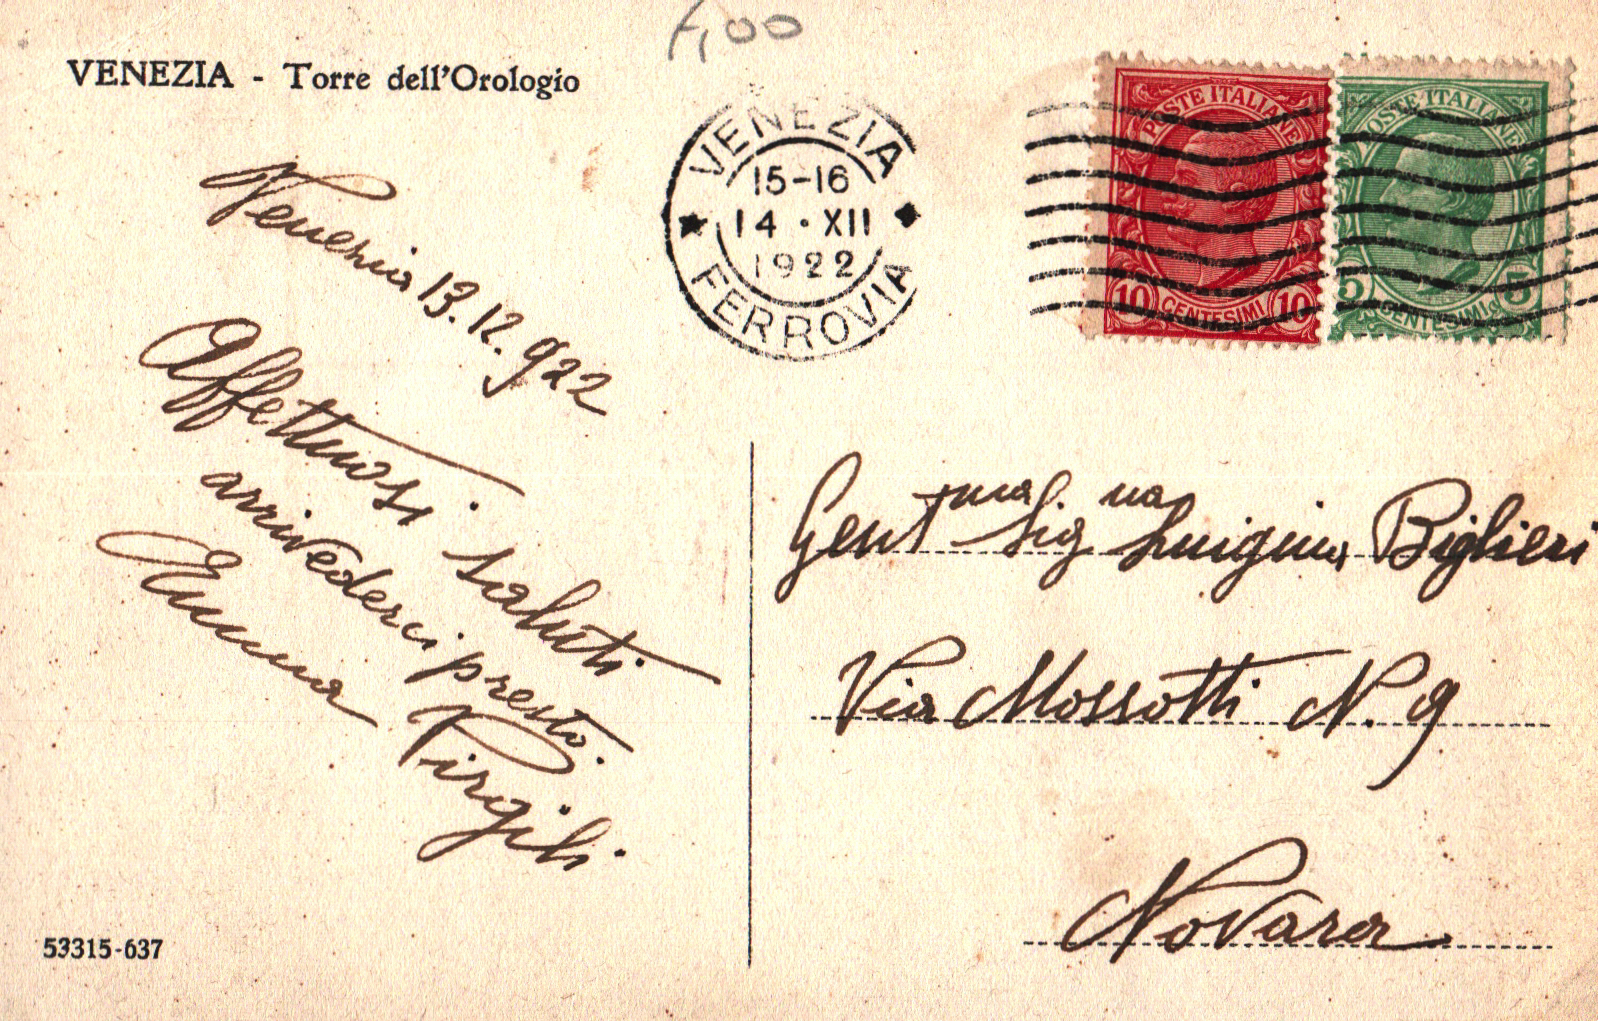 VENEZIA - Torre dell'Orologio
Venezia 13.12.922
Affettuosi saluti
arrivederci presto.
Emma Virgili
53315-637
VENEZIA
15-16
14 · XII
1922
FERROVIA
POSTE ITALIANE
10 CENTESIMI 10
POSTE ITALIANE
5 CENTESIMI 5
Gentma Signa Luigina Biglieri
Via Mossotti N. 9
Novara